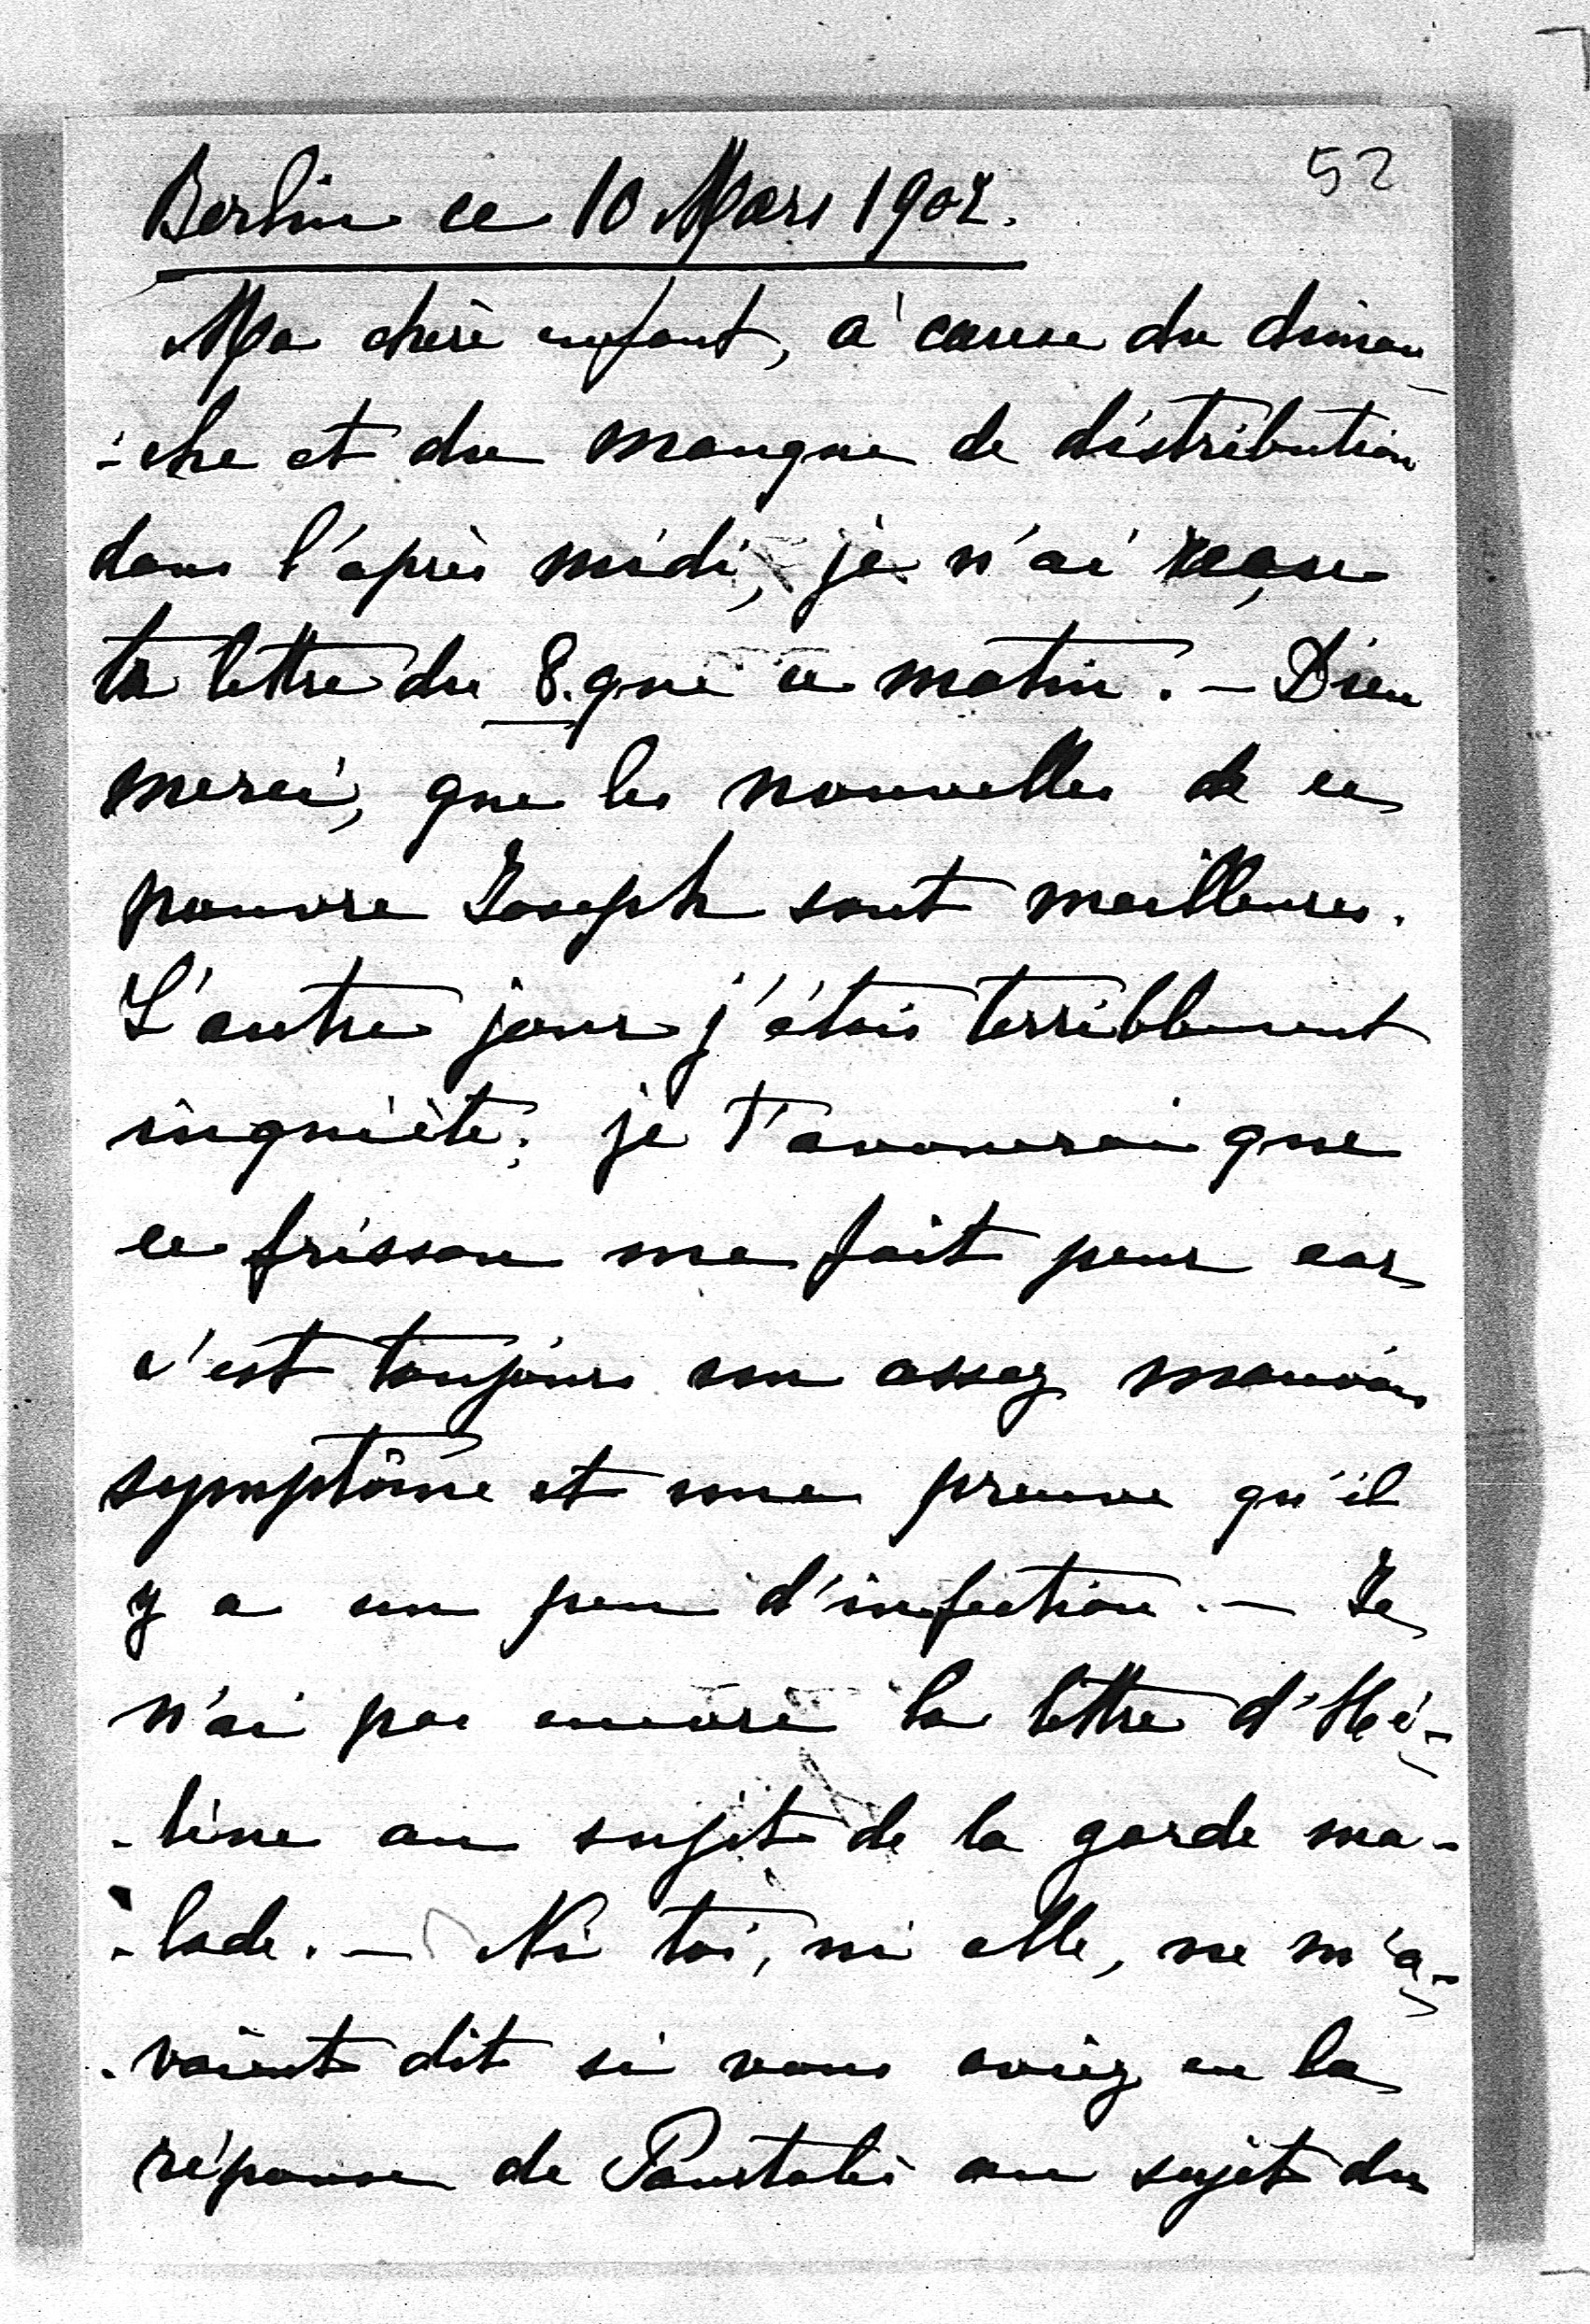 52
Berlin ce 10 Mars 1902.
Ma chère enfant, à cause du diman-
-che et du manque de distribution
dans l'après midi, je n'ai reçu
ta lettre du 8. que ce matin. — Dieu
merci, que les nouvelles de ce
pauvre Joseph sont meilleures.
L'autre jour j'étais terriblement
inquiète; je t'avouerai que
ce frisson me fait peur car
c'est toujours un assez mauvais
symptôme et une preuve qu'il
y a un peu d'infection. — Je
n'ai pas encore la lettre d'Hé-
-lène au sujet de la garde ma-
-lade. — Ni toi, ni elle, ne m'a-
-vaient dit si vous aviez eu la
réponse de au sujet du